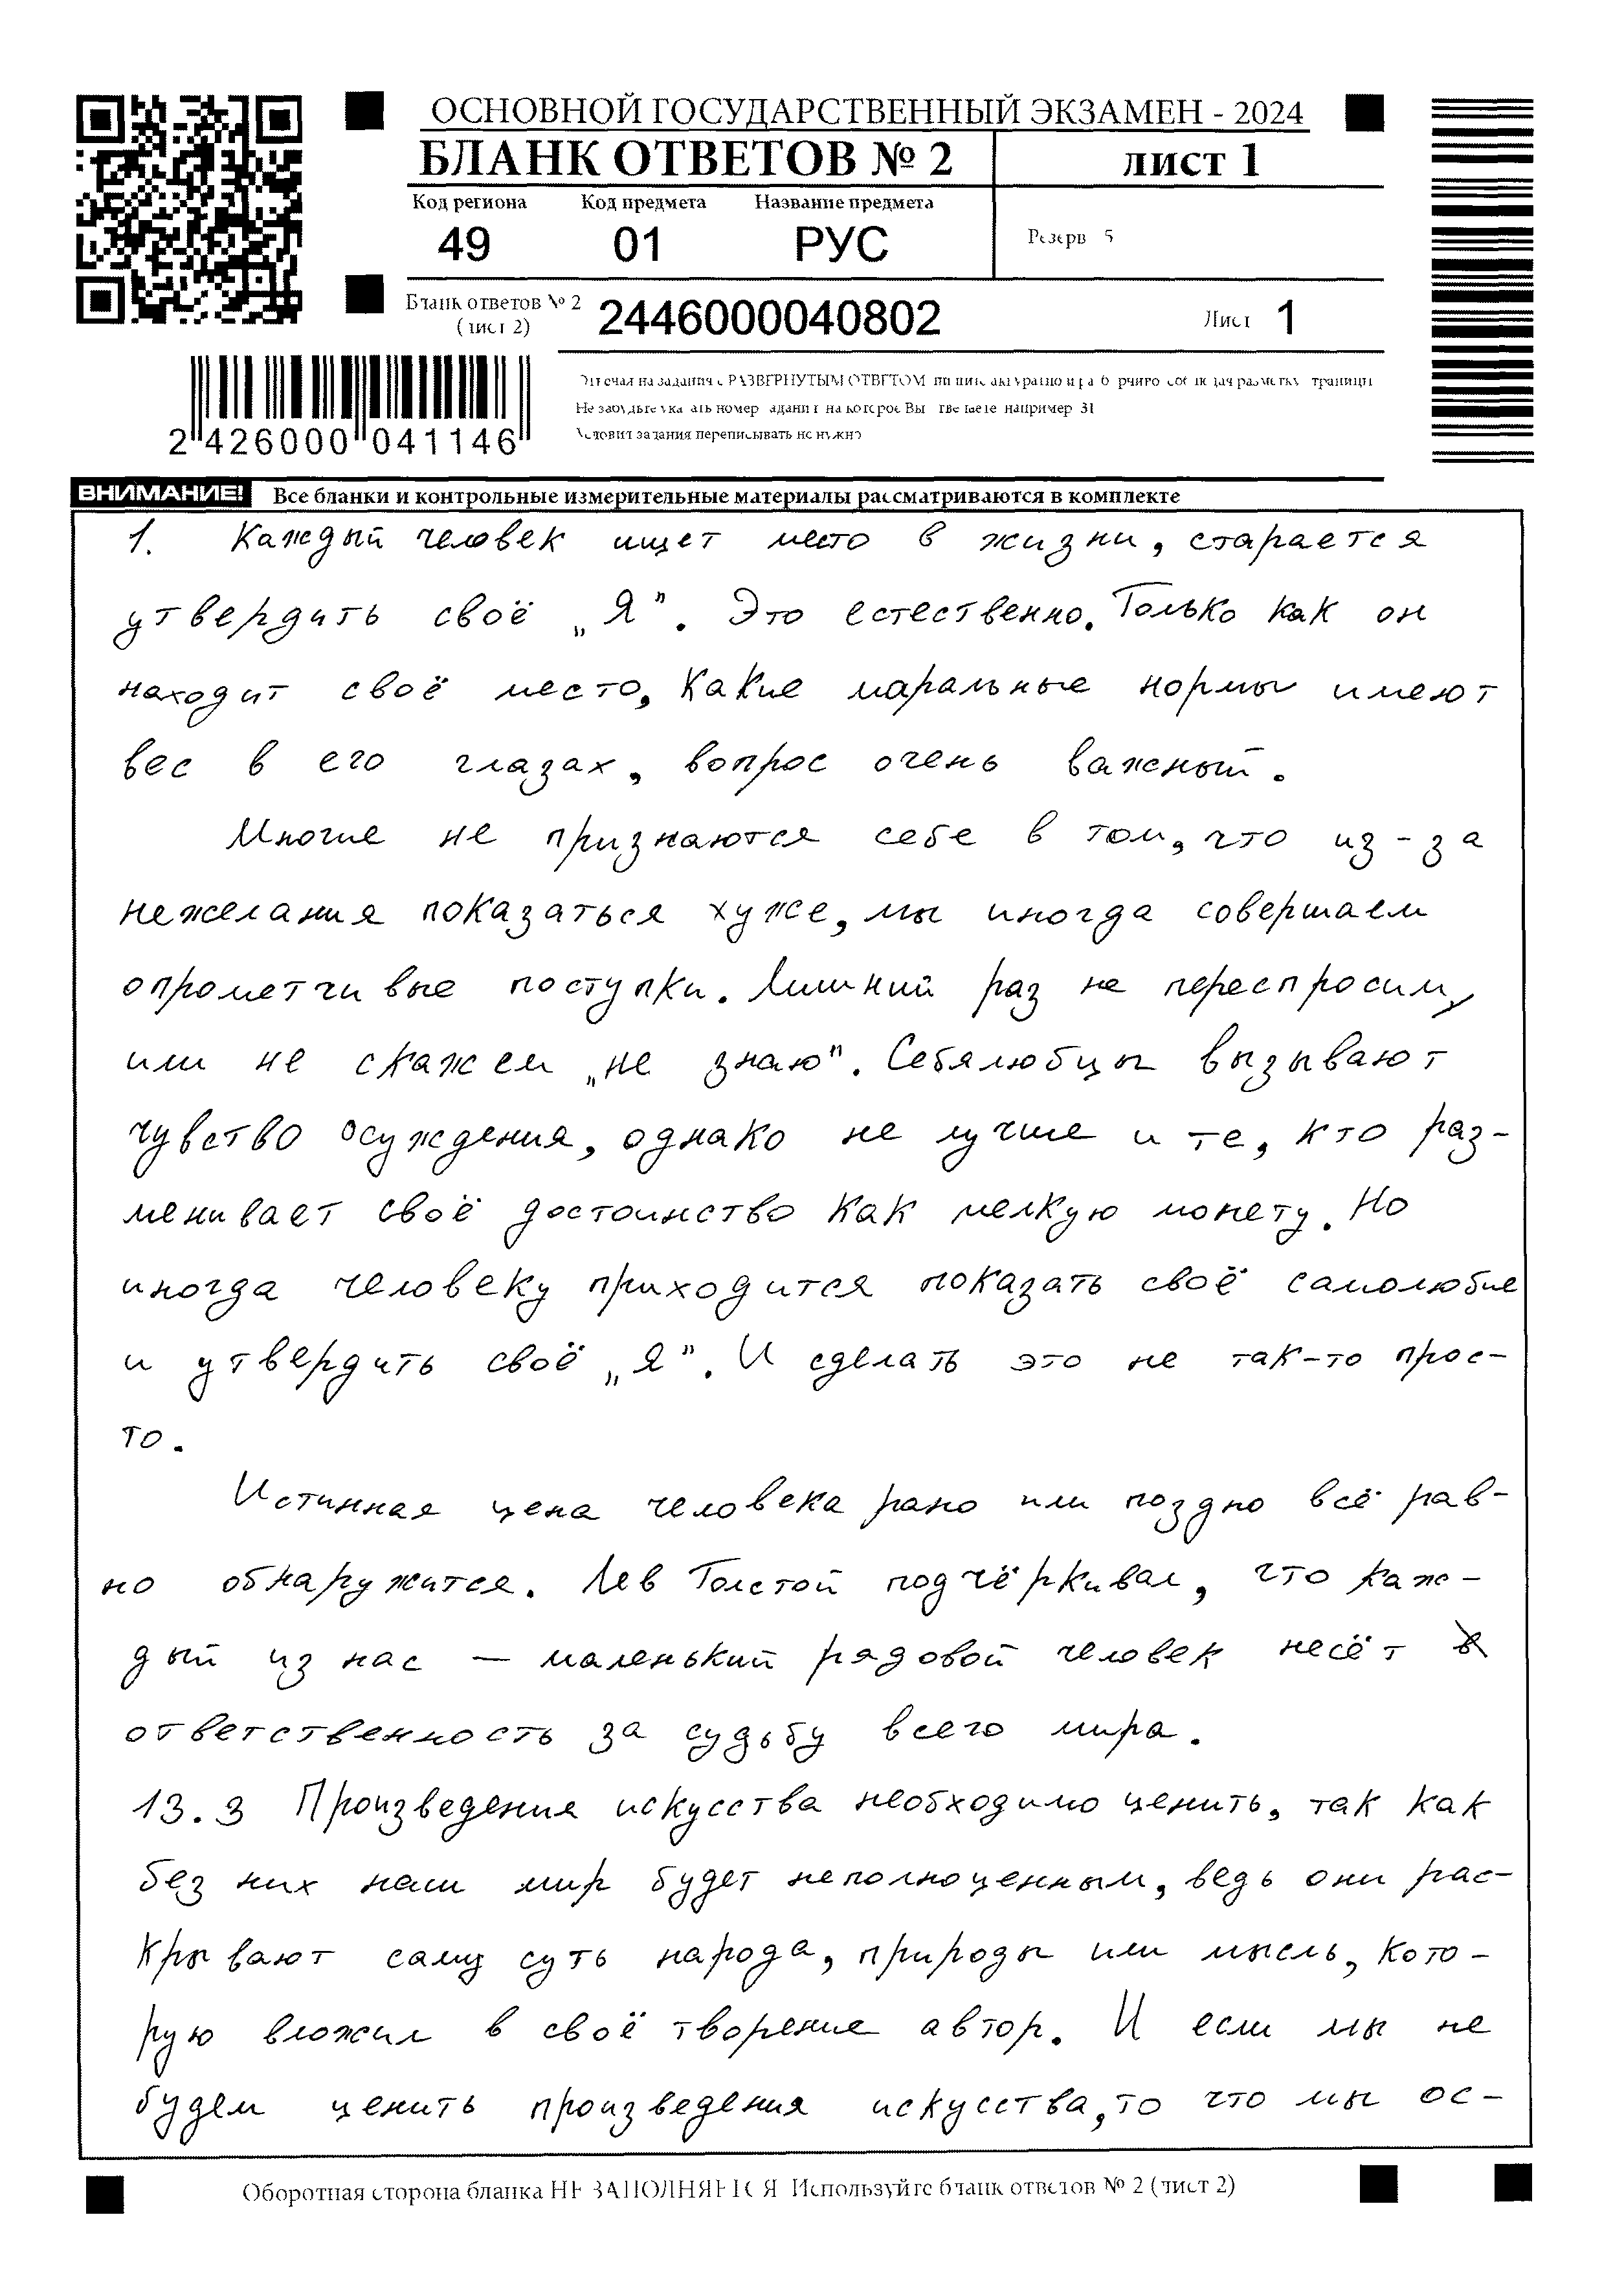 ОСНОВНОЙ ГОСУДАРСТВЕННЫЙ ЭКЗАМЕН - 2024
БЛАНК ОТВЕТОВ № 2
лист 1
Код региона Код предмета Название предмета
49 01 РУС
Резерв 5
Бланк ответов № 2
(лист 2)
2446000040802
Лист 1
2 426000 041146
Не забудьте указать номер задания на которое Вы отвечаете например 31
Условия задания переписывать не нужно
ВНИМАНИЕ! Все бланки и контрольные измерительные материалы рассматриваются в комплекте
1. Каждый человек ищет место в жизни, старается
утвердить своё „Я". Это естественно. Только как он
находит своё место, какие маральные нормы имеют
вес в его глазах, вопрос очень важный.
Многие не признаются себе в том, что из-за
нежелания показаться хуже, мы иногда совершаем
опрометчивые поступки. Лишний раз не переспросим,
или не скажем „не знаю". Себялюбцы вызывают
чувство осуждения, однако не лучше и те, кто раз-
менивает своё достоинство как мелкую монету. Но
иногда человеку приходится показать своё самолюбие
и утвердить своё „Я". И сделать это не так-то прос-
то.
Истинная цена человека рано или поздно всё рав-
но обнаружится. Лев Толстой подчёркивал, что каж-
дый из нас — маленький рядовой человек несёт
ответственность за судьбу всего мира.
13.3 Произведения искусства необходимо ценить, так как
без них наш мир будет неполноценным, ведь они рас-
крывают саму суть народа, природы или мысль, кото-
рую вложил в своё творение автор. И если мы не
будем ценить произведения искусства, то что мы ос-
Оборотная сторона бланка НЕ ЗАПОЛНЯЕТСЯ Используйте бланк ответов № 2 (лист 2)